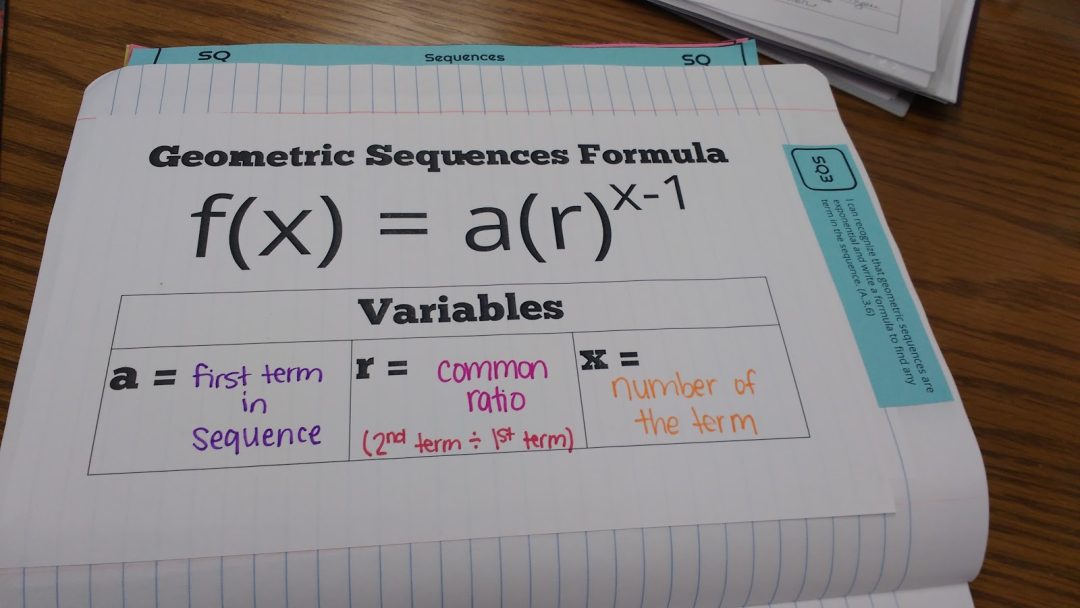 SQ Sequences SQ
Geometric Sequences Formula
f(x) = a(r)^{x-1}
Variables
a = first term
in
sequence
r = common
ratio
(2nd term ÷ 1st term)
x =
number of
the term
SQ3
I can recognize that geometric sequences are
exponential and write a formula to find any
term in the sequence. (A.3.6)